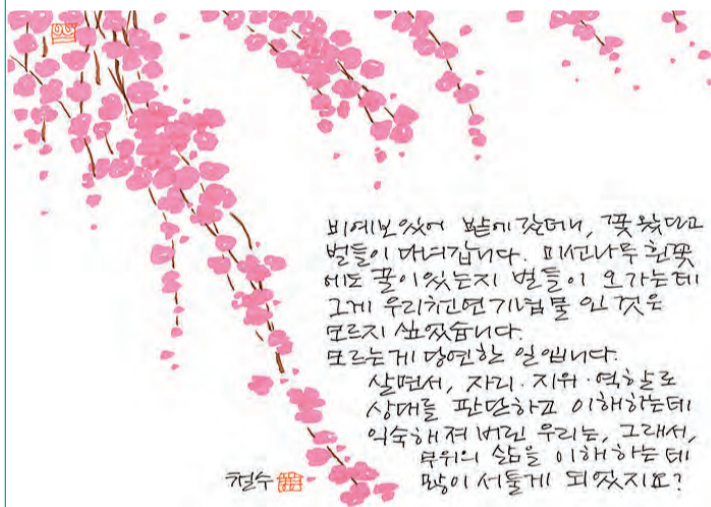 비예보 있어 밭에 갔더니, 꽃 왔다고
벌들이 다녀갑니다. 미선나무 흰꽃
에도 꿀이 있는지 벌들이 오가는데
그게 우리 천연기념물 인 것은
모르지 싶었습니다.
모르는게 당연한 일입니다.
살면서, 자리·지위·역할로
상대를 판단하고 이해하는데
익숙해져 버린 우리는, 그래서,
부위의 삶을 이해하는데
많이 서툴게 되었지요?
철수